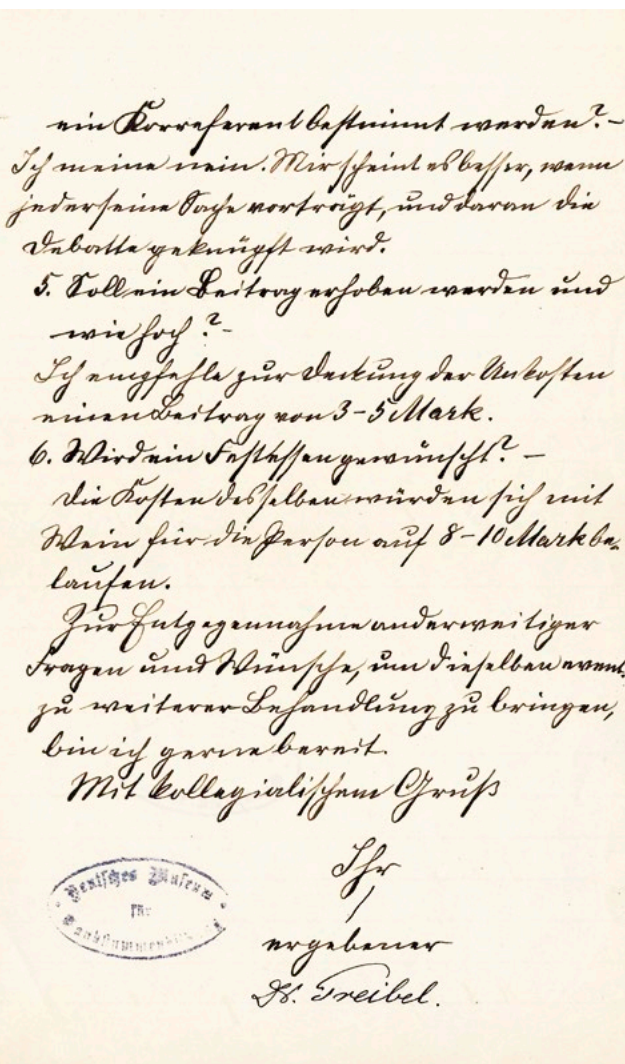 ein Korreferent bestimmt werden? –
Ich meine nein. Mir scheint es besser, wenn
jeder seine Sache vorträgt, und daran die
Debatte geknüpft wird.
5. Soll ein Beitrag erhoben werden und
wie hoch? –
Ich empfehle zur Deckung der Unkosten
einen Beitrag von 3–5 Mark.
6. Wird ein Festessen gewünscht? –
Die Kosten desselben würden sich mit
Wein für die Person auf 8–10 Mark be-
laufen.
Zur Entgegennahme anderweitiger
Fragen und Wünsche, um dieselben event.
zu weiterer Behandlung zu bringen,
bin ich gerne bereit.
Mit kollegialischem Gruß
Ihr
ergebener
Dr. Treibel.
Deutsches Museum
für
Taubstummenbildung